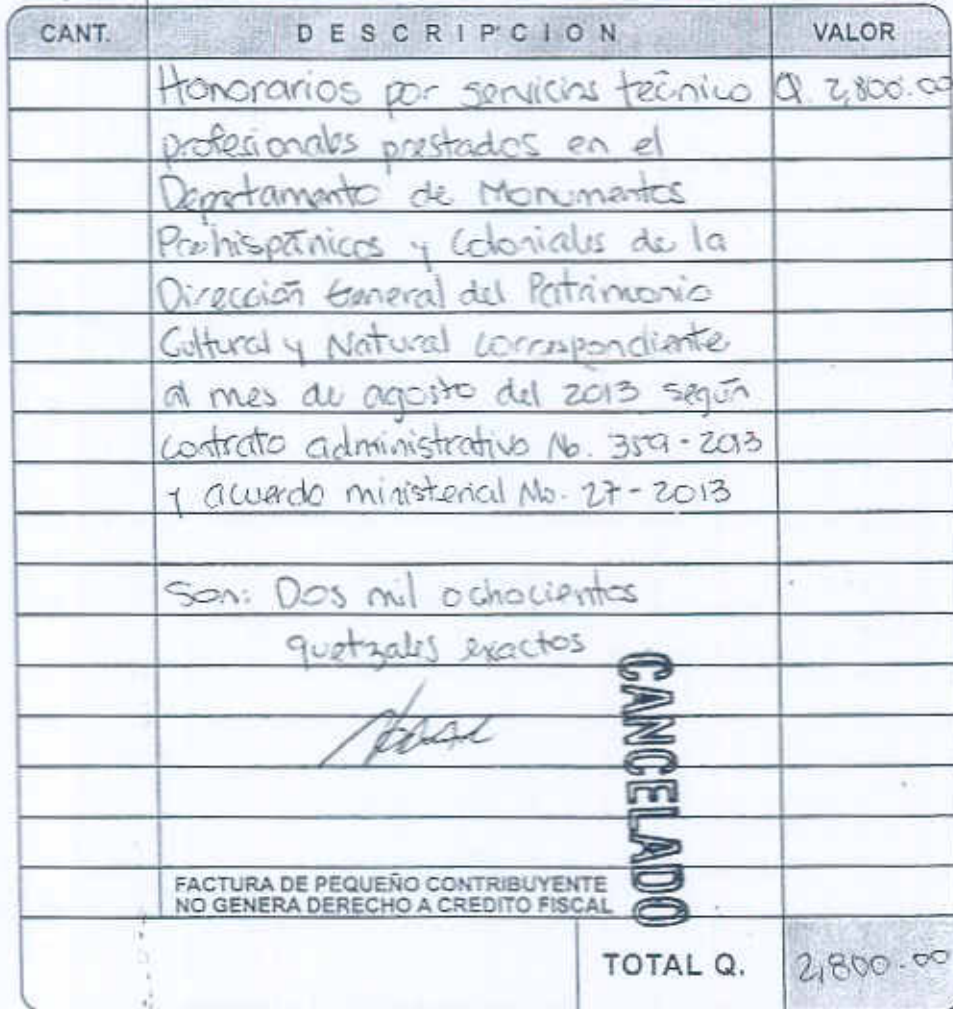 CANT. DESCRIPCION VALOR
Honorarios por servicios técnico Q. 2,800.00
profesionales prestados en el
Departamento de Monumentos
Prehispánicos y Coloniales de la
Dirección General del Patrimonio
Cultural y Natural correspondiente
al mes de agosto del 2013 según
contrato administrativo No. 359-2013
y acuerdo ministerial No. 27-2013
Son: Dos mil ochocientos
quetzales exactos
CANCELADO
FACTURA DE PEQUEÑO CONTRIBUYENTE
NO GENERA DERECHO A CREDITO FISCAL
TOTAL Q. 2,800.00